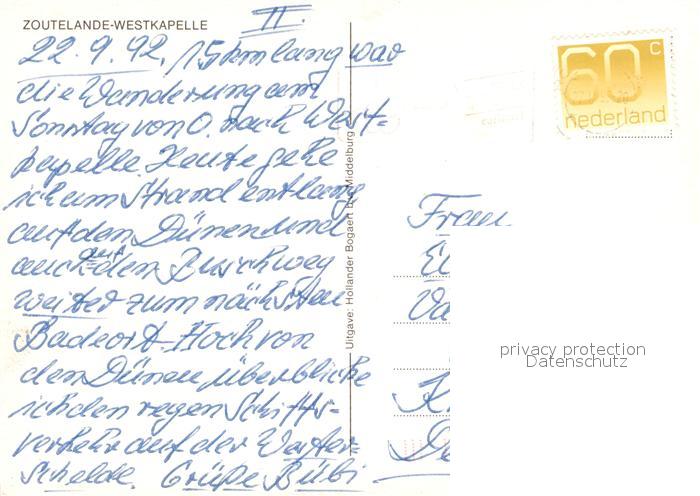 ZOUTELANDE-WESTKAPELLE
II.
22.9.92. 15 km lang war
die Wanderung am
Sonntag von O. nach West-
kapelle. Heute gehe
ich am Strand entlang
auf den Dünen und
auch auf den Rückweg
weiter zum nächsten
Badeort. Hoch von
den Dünen überblicke
ich den regen Schiffs-
verkehr auf der Wester-
schelde. Grüße Bübi
Uitgave: Hollander Bogaert bv Middelburg
60 c
nederland
Frau
privacy protection
Datenschutz